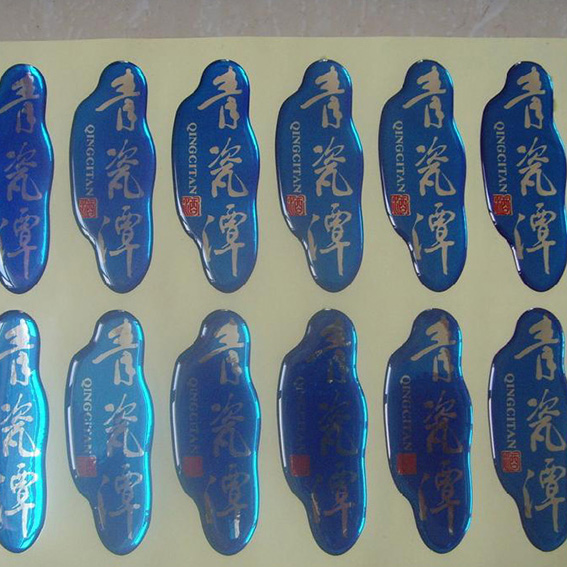 青瓷潭
青瓷潭
QINGCITAN
青瓷潭
QINGCITAN
青瓷潭
QINGCITAN
青瓷潭
QINGCITAN
青瓷潭
QINGCITAN
青瓷潭
青瓷潭
QINGCITAN
青瓷潭
QINGCITAN
青瓷潭
QINGCITAN
青瓷潭
QINGCITAN
青瓷潭
QINGCITAN